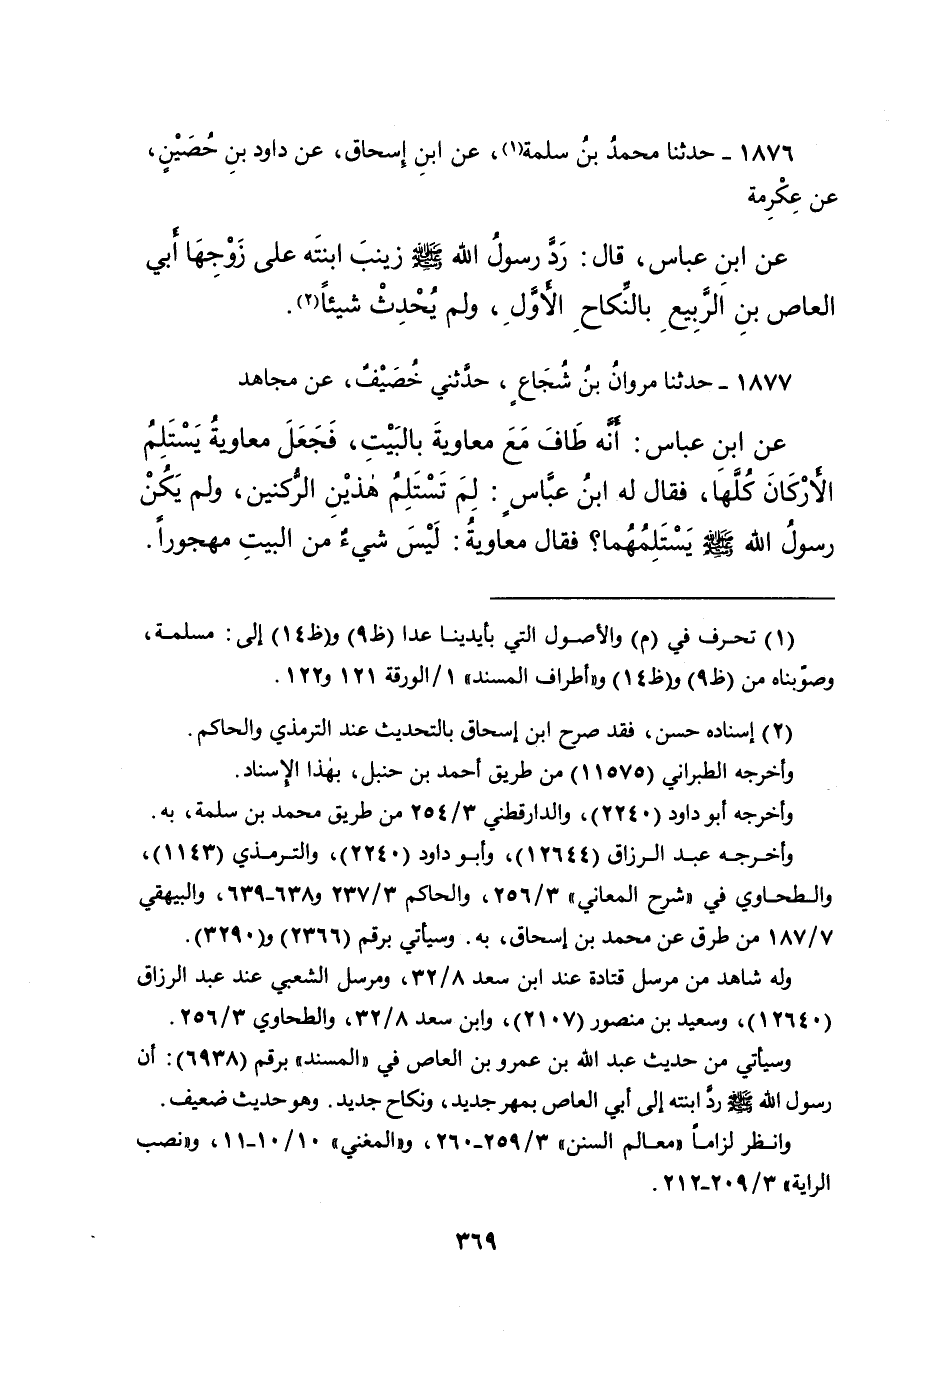 ١٨٧٦ ـ حدثنا محمدُ بنُ سلمة(١)، عن ابنِ إسحاق، عن داود بنِ حُصَيْنٍ،
عن عِكْرِمة
عن ابنِ عباس، قال: رَدَّ رسولُ الله ﷺ زينبَ ابنتَه على زَوْجِهَا أَبي
العاص بنِ الرَّبِيعِ بالنِّكاحِ الأَوَّلِ، ولم يُحْدِثْ شيئاً(٢).
١٨٧٧ ـ حدثنا مروانُ بنُ شُجَاعٍ، حدَّثني خُصَيْفٌ، عن مجاهد
عن ابن عباس: أَنَّه طَافَ مَعَ معاويةَ بالبَيْتِ، فَجَعَلَ معاويةُ يَسْتَلِمُ
الأَرْكَانَ كُلَّها، فقال له ابنُ عبَّاسٍ: لِمَ تَسْتَلِمُ هٰذيْنِ الرُّكنين، ولم يَكُنْ
رسولُ الله ﷺ يَسْتَلِمُهُما؟ فقال معاويةُ: لَيْسَ شيءٌ من البيتِ مهجوراً.
(١) تحرف في (م) والأصول التي بأيدينا عدا (ظ٩) و(ظ١٤) إلى: مسلمة،
وصوّبناه من (ظ٩) و(ظ١٤) و«أطراف المسند» ١/الورقة ١٢١ و١٢٢.
(٢) إسناده حسن، فقد صرح ابن إسحاق بالتحديث عند الترمذي والحاكم.
وأخرجه الطبراني (١١٥٧٥) من طريق أحمد بن حنبل، بهٰذا الإسناد.
وأخرجه أبو داود (٢٢٤٠)، والدارقطني ٢٥٤/٣ من طريق محمد بن سلمة، به.
وأخرجه عبد الرزاق (١٢٦٤٤)، وأبو داود (٢٢٤٠)، والترمذي (١١٤٣)،
والطحاوي في «شرح المعاني» ٢٥٦/٣، والحاكم ٢٣٧/٣ و٦٣٨ـ٦٣٩، والبيهقي
١٨٧/٧ من طرق عن محمد بن إسحاق، به. وسيأتي برقم (٢٣٦٦) و(٣٢٩٠).
وله شاهد من مرسل قتادة عند ابن سعد ٣٢/٨، ومرسل الشعبي عند عبد الرزاق
(١٢٦٤٠)، وسعيد بن منصور (٢١٠٧)، وابن سعد ٣٢/٨، والطحاوي ٢٥٦/٣.
وسيأتي من حديث عبد الله بن عمرو بن العاص في «المسند» برقم (٦٩٣٨): أن
رسول الله ﷺ ردَّ ابنته إلى أبي العاص بمهر جديد، ونكاح جديد. وهو حديث ضعيف.
وانظر لزاماً «معالم السنن» ٢٥٩/٣ـ٢٦٠، و«المغني» ١٠/١٠ـ١١، و«نصب
الراية» ٢٠٩/٣ـ٢١٢.
٣٦٩